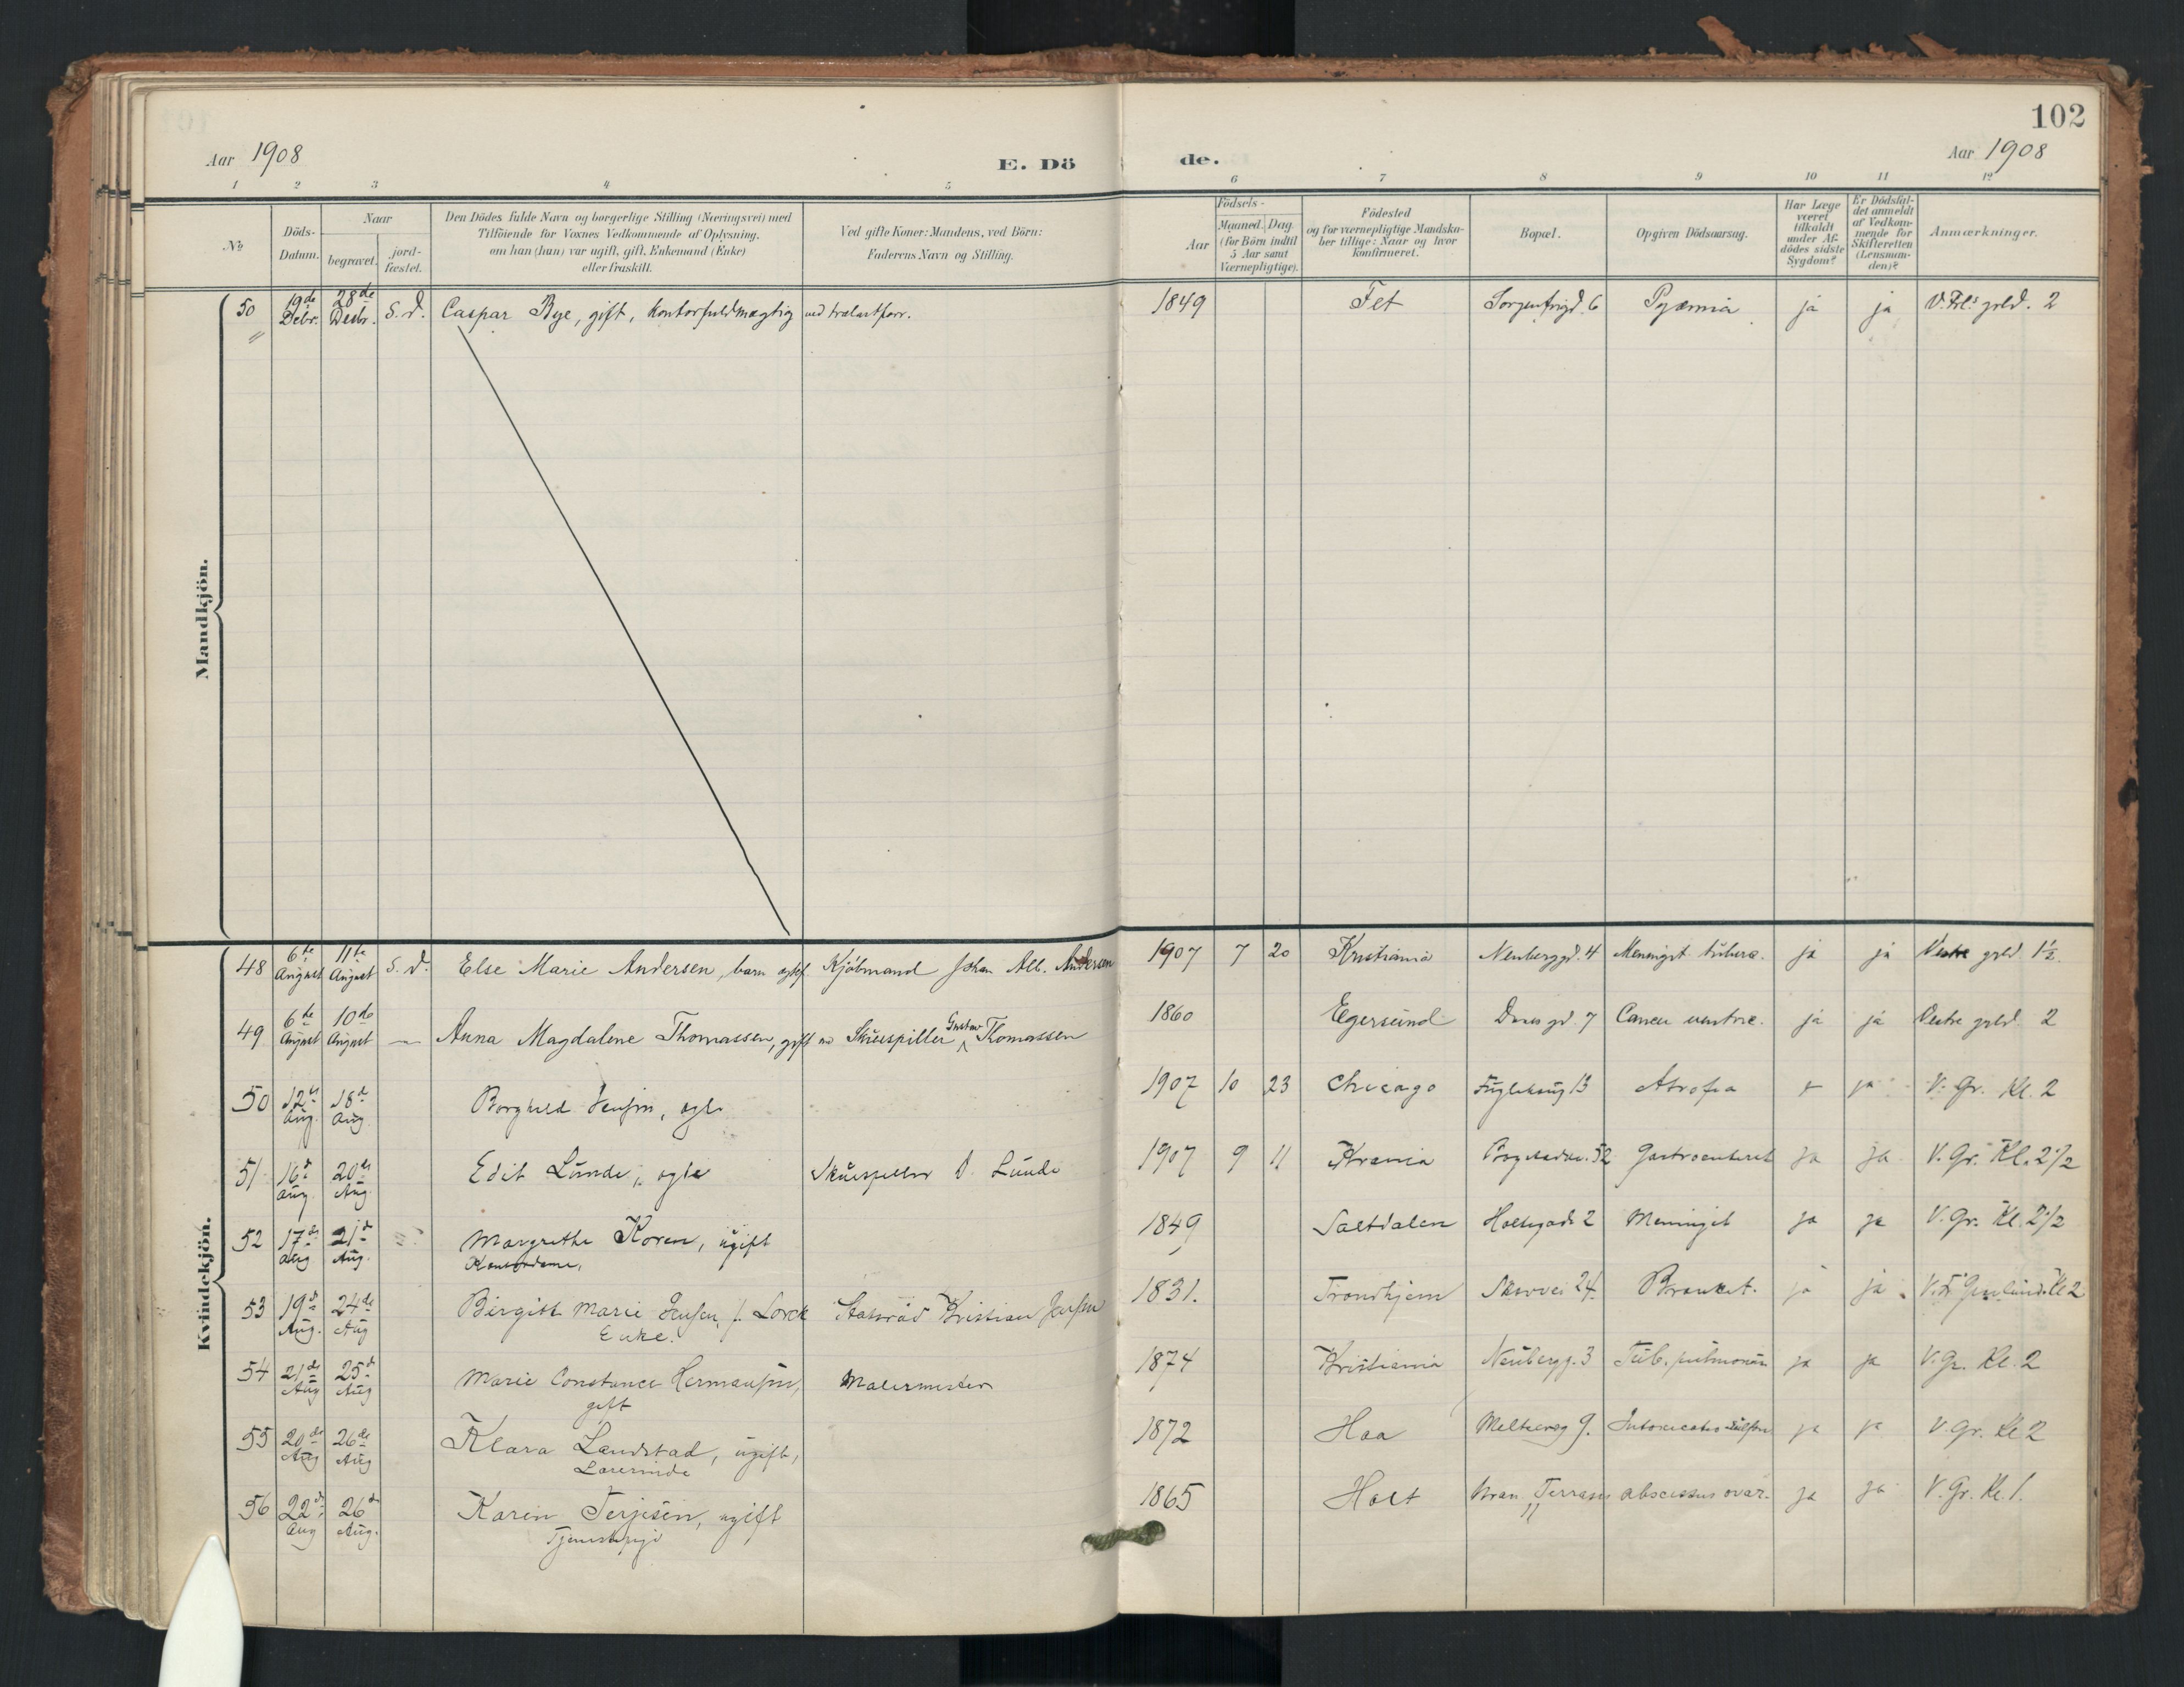 102
Aar 1908 E. Dö de. Aar 1908
1 2 3 4 5 6 7 8 9 10 11 12
№ Döds-Datum. Naar begravet. jord-fæstet. Den Dödes fulde Navn og borgerlige Stilling (Næringsvei) med Tilföiende for Voxnes Vedkommende af Oplysning, om han (hun) var ugift, gift, Enkemand (Enke) eller fraskilt. Ved gifte Koner: Mandens, ved Börn: Faderens Navn og Stilling. Aar Födsels- Maaned. Dag. (for Börn indtil 5 Aar samt Værnepligtige). Födested og for værnepligtige Mandskaber tillige: Naar og hvor konfirmeret. Bopæl. Opgiven Dödsaarsag. Har Læge været tilkaldt under Afdödes sidste Sygdom? Er Dödsfaldet anmeldt af Vedkommende for Skifteretten (Lensmanden)? Anmærkninger.
Mandkjön.
50 19de Debr. 28de Desbr. S. d. Caspar Bye, gift, kontorfuldmægtig ved trælastforr. 1849 Fet Sorgenfrigd. 6 Pyæmia ja ja V. Frl.s grld. 2
Kvindekjön.
48 6te August 11te August S. d. Else Marie Andersen, barn Kjöbmand Johan Alb. Andersen 1907 7 20 Kristiania Neuberggd. 4 Meningit tubera. ja ja Vestre grld 1½.
49 6te August 10de August — Anna Magdalene Thomassen, gift m Skuespiller Gustav Thomassen 1860 Egersund gd. 7 Cancer ventric. ja ja Vestre grld. 2
50 12te Aug. 18de Aug. Borghild Jensen, egte 1907 10 23 Chicago Fuglehaug 13 Atrofia ja V. Gr. Kl. 2
51 16de Aug. 20de Aug. Edit Lunde, egte Skuespiller Lunde 1907 9 11 Krania 52 Gastroenterit ja ja V. Gr. Kl. 2½
52 17de Aug 21de Aug. Margrethe Koren, ugift 1849 Saltdalen Holtegade 2 Meningit ja ja V. Gr. Kl. 2½
53 19de Aug. 24de Aug Birgitte Marie Jensen, f. Lorck Enke. Statsråd Kristian Jensen 1831. Trondhjem Skovvei 24. Bronkit. ja ja V. Kl 2
54 21de Aug 25de Aug Marie Constance Hermansen, gift Malermester 1874 Kristiania Neubergg. 3 Tub. pulmonum ja ja V. Gr. Kl. 2
55 20de Aug 26de Aug Klara Landstad, ugift, Lærerinde 1872 Haa Meltzersg 9. Intoxicatio ja ja V. Gr. Kl 2
56 22de Aug 26de Aug. Karen Terjesen, ugift Tjenestepige 1865 Holt Terrasse 11 abscessus ovar. ja ja V. Gr. Kl. 1.